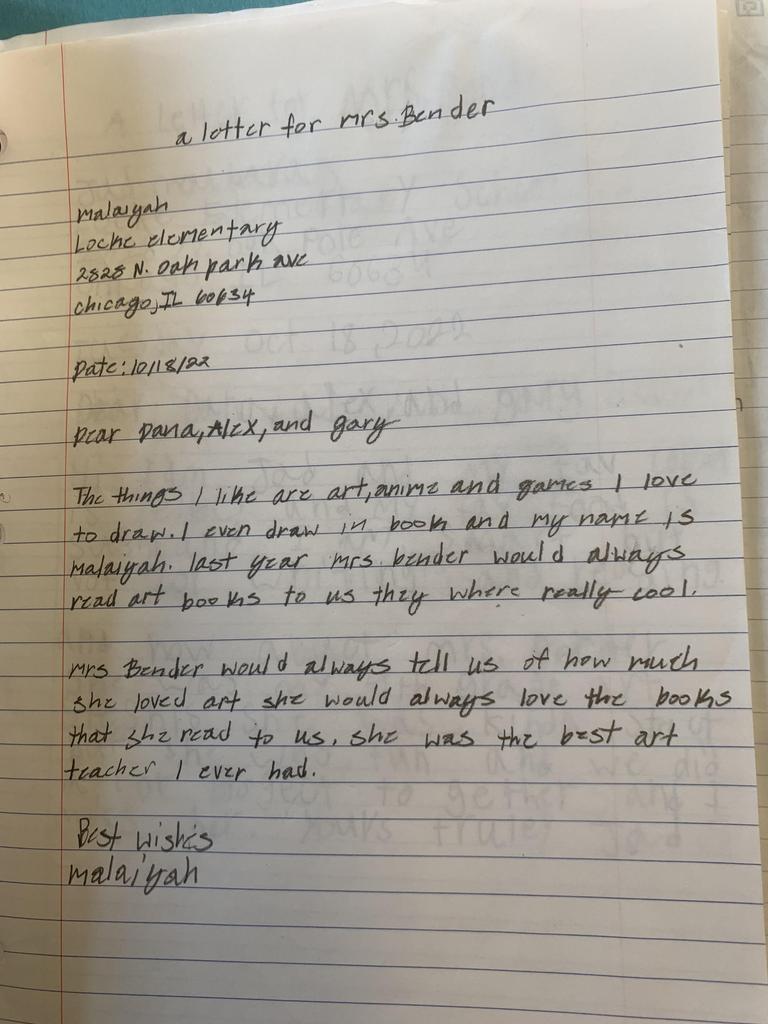 a letter for mrs. Bender
malaiyah
Locke elementary
2828 N. Oak park ave
chicago, IL 60634
Date: 10/18/22
Dear Dana, Alex, and gary
The things I like are art, anime and games I love
to draw. I even draw in book and my name is
malaiyah. last year mrs. bender would always
read art books to us they where really cool.
Mrs Bender would always tell us of how much
she loved art she would always love the books
that she read to us. she was the best art
teacher I ever had.
Best wishes
malaiyah